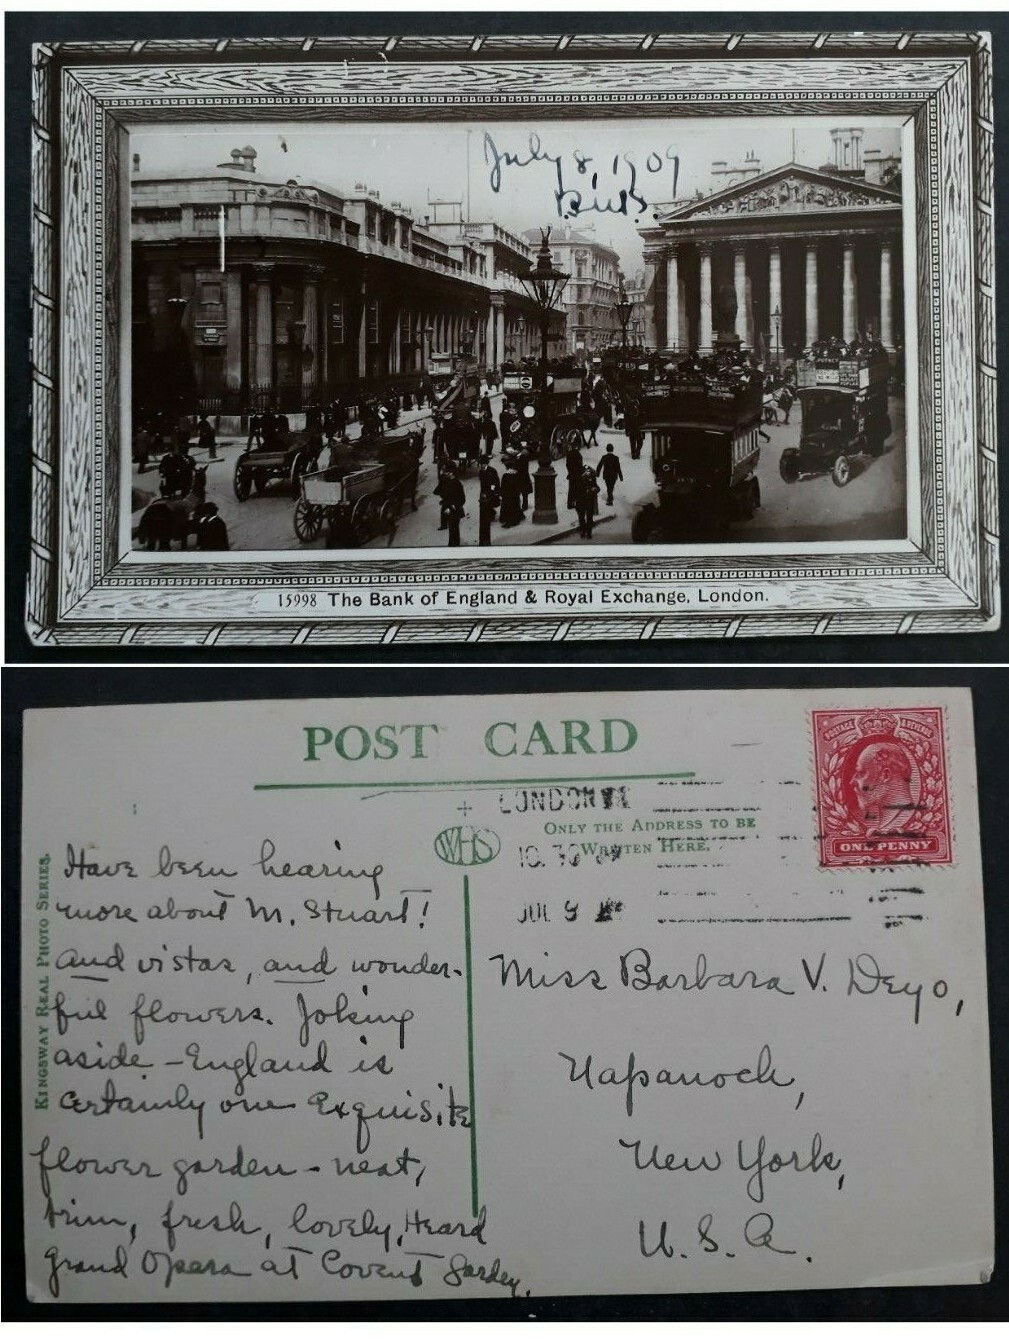 July 8, 1909
15998 The Bank of England & Royal Exchange, London.
POST CARD
LONDON
ONLY THE ADDRESS TO BE
WRITTEN HERE.
WHS
10.30
JUL 9
POSTAGE & REVENUE
ONE PENNY
KINGSWAY REAL PHOTO SERIES.
Have been hearing
more about M. Stuart!
and vistas, and wonder-
ful flowers. Joking
aside - England is
certainly one exquisite
flower garden - neat,
trim, fresh, lovely, Heard
Grand Opera at Covent Garden.
Miss Barbara V. Deyo,
Napanoch,
New York,
U.S.A.